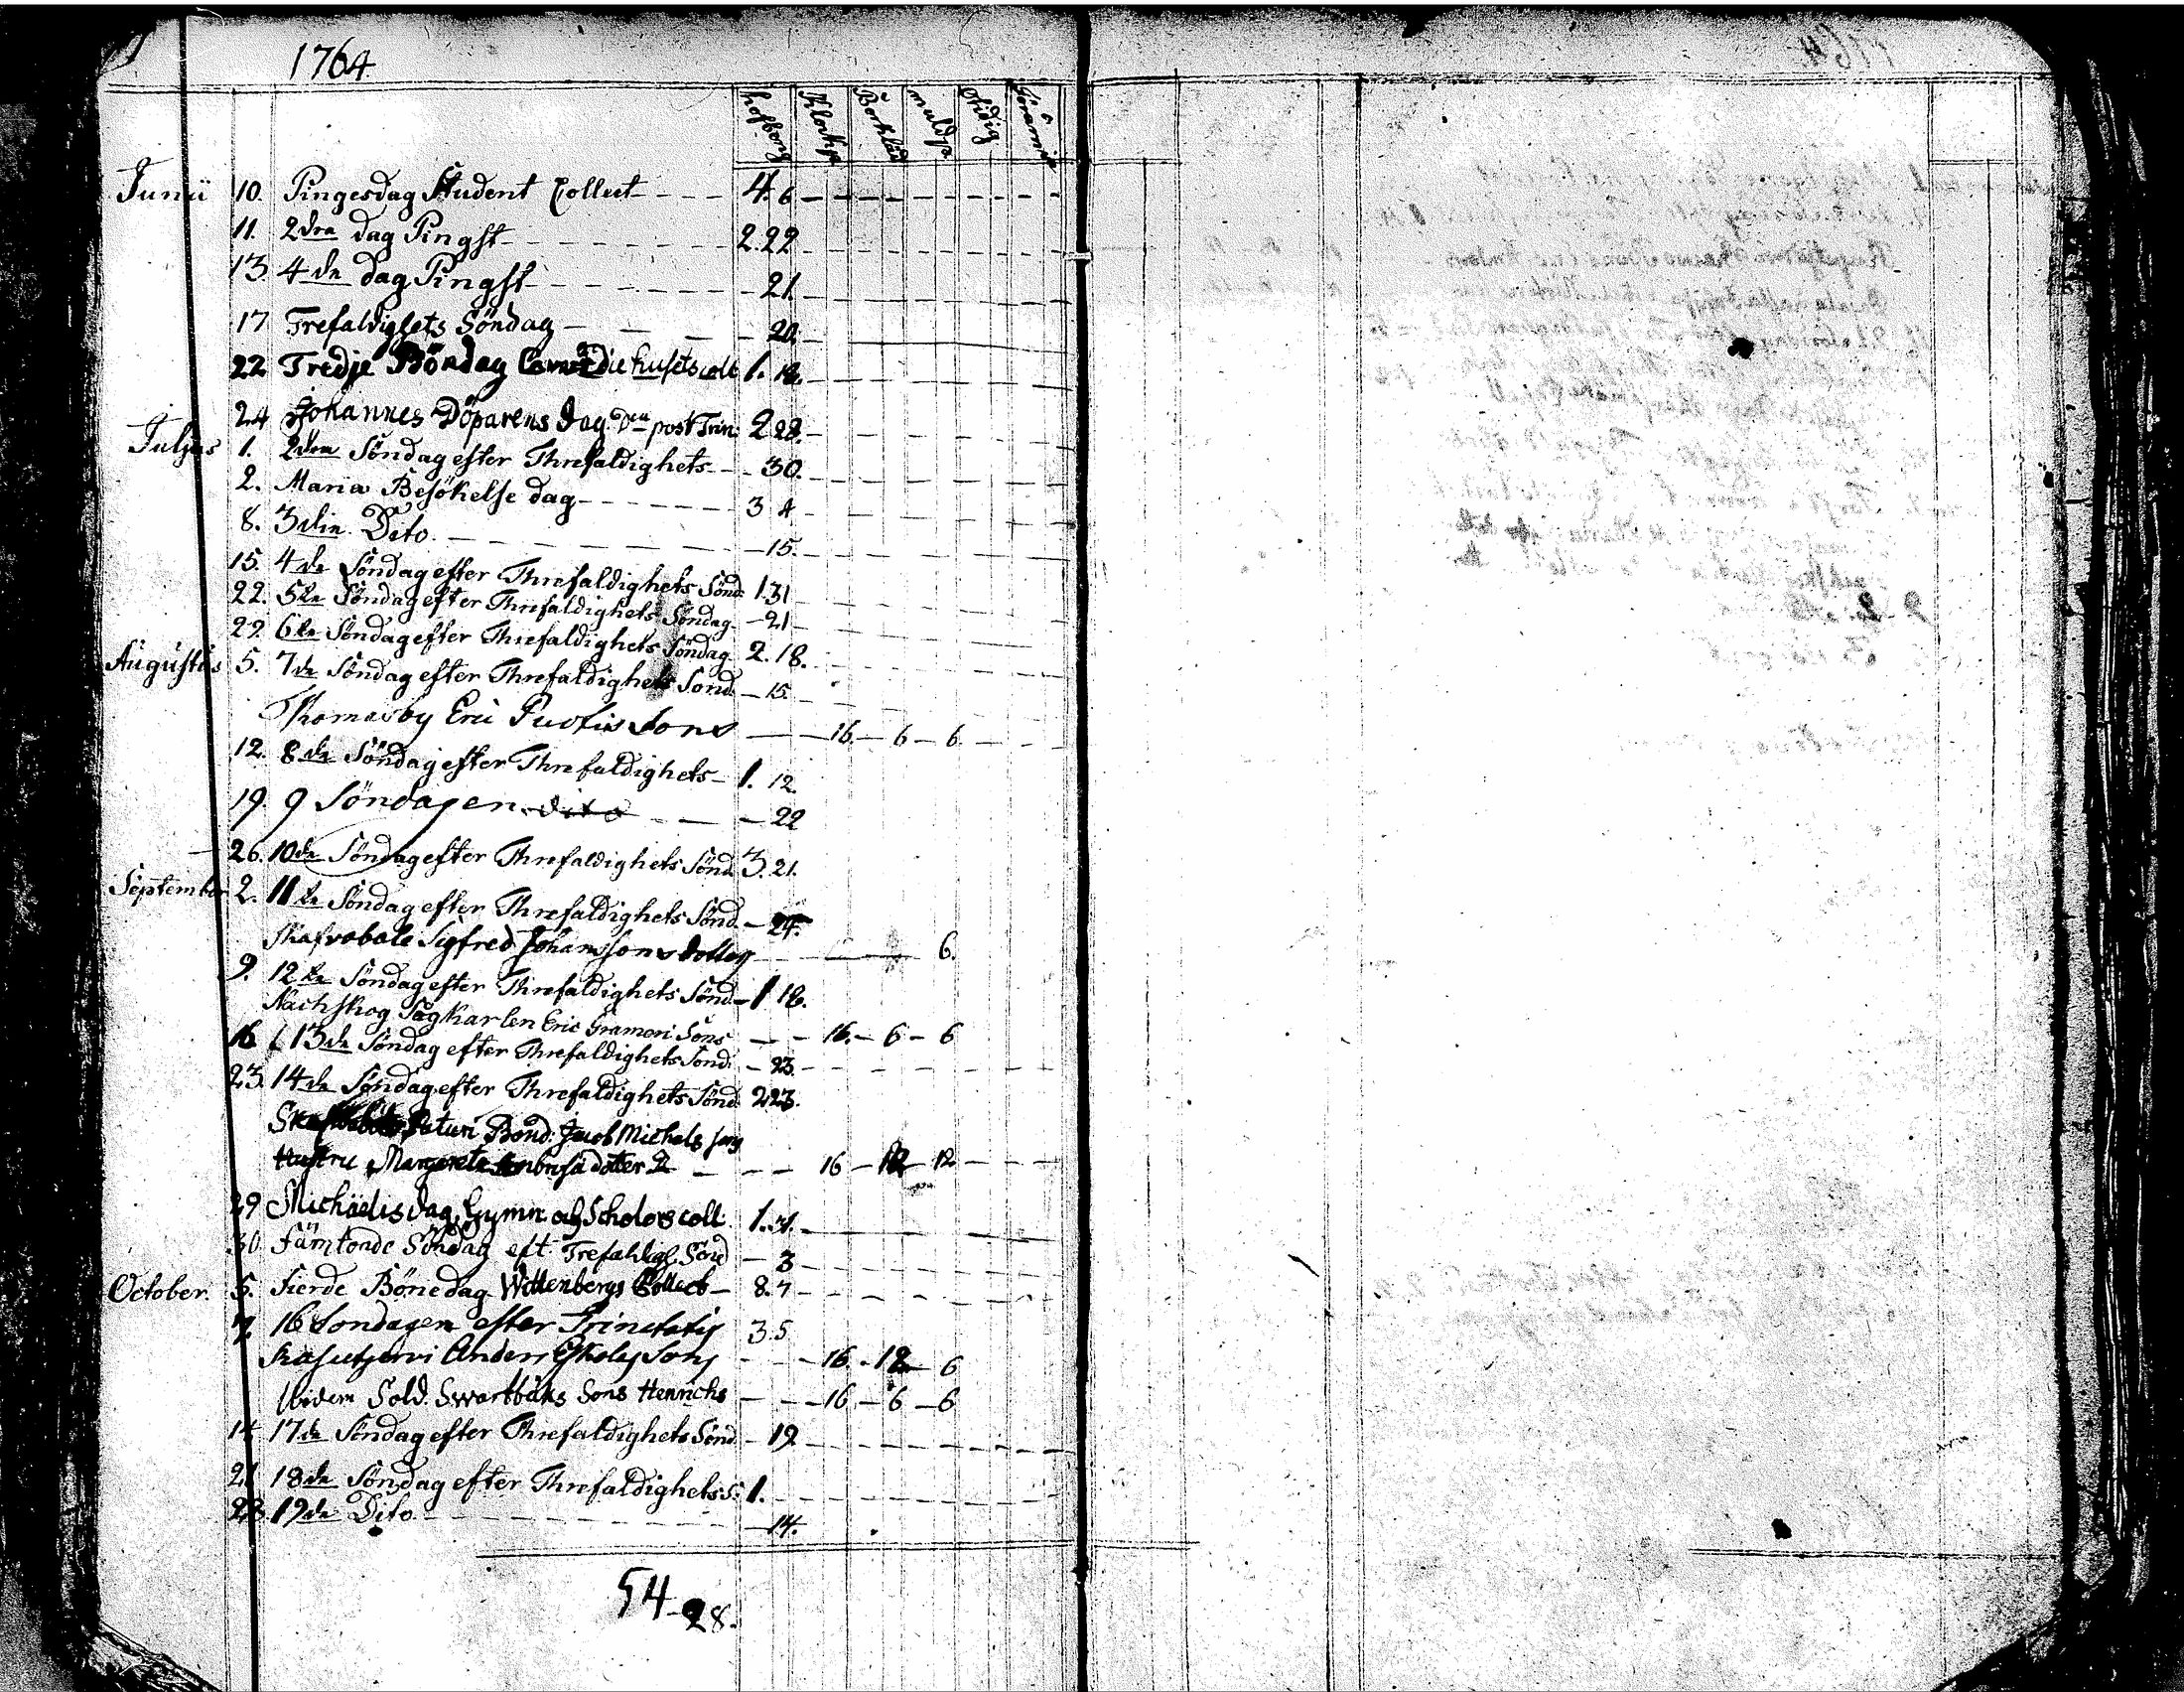 1764
hofbong Klockp Bårkläd muldp
Junii 10. Pingesdag Student Collect 4. 6
11. 2dra dag Pingst 2. 22
13. 4de dag Pingst 21.
17 Trefaldighets Söndag 20.
22 Tredje Böndag Comedie husets coll 1. 18.
24 Johannes Döparens dag post Trin: 2 28.
Julius 1. 2dra Söndag efter Threfaldighets 30.
2. Maria Besökelse dag 3 4
8. 3die Dito 15.
15. 4de Söndag efter Threfaldighets Sönd 1.31
22. 5te Söndag efter Threfaldighets Söndag 21
29. 6te Söndag efter Threfaldighets Söndag 2. 18.
Augustus 5. 7de Söndag efter Threfaldighets Sond. 15.
Thomasby Eric Sons 16. 6 6
12. 8de Söndag efter Threfaldighets 1. 12.
19. 9 Söndagen dito 22
26. 10de Söndag efter Threfaldighets Sönd 3. 21.
September 2. 11te Söndag efter Threfaldighets Sönd. 24.
Sigfred Johanssons dotter 6.
9. 12te Söndag efter Threfaldighets Sönd 1 18.
Nachskog Sågkarlen Eric Sons 16. 6 6
16 13de Söndag efter Threfaldighets Sond. 23.
23. 14de Söndag efter Threfaldighets Sönd 2 23.
Bond. Jacob Michels sons
Hustru Margareta doter 16 12 12
29 Michäelis dag, Gymn. och Scholors coll. 1. 31.
30 Fämtonde Söndag eft. Trefaldigh. Sönd 3
October. 5. Fierde Bönedag Wittenbergs Collect 8. 7
7. 16 Sondagen efter Trinitatis 3. 5
Anders Sons 16. 12 6
Ibidem Sold. Swartbäks Sons Henrichs 16 6 6
14 17de Söndag efter Threfaldighets Sönd. 19
21 18de Söndag efter Threfaldighets S: 1.
28. 19de Dito 14.
54 - 28.